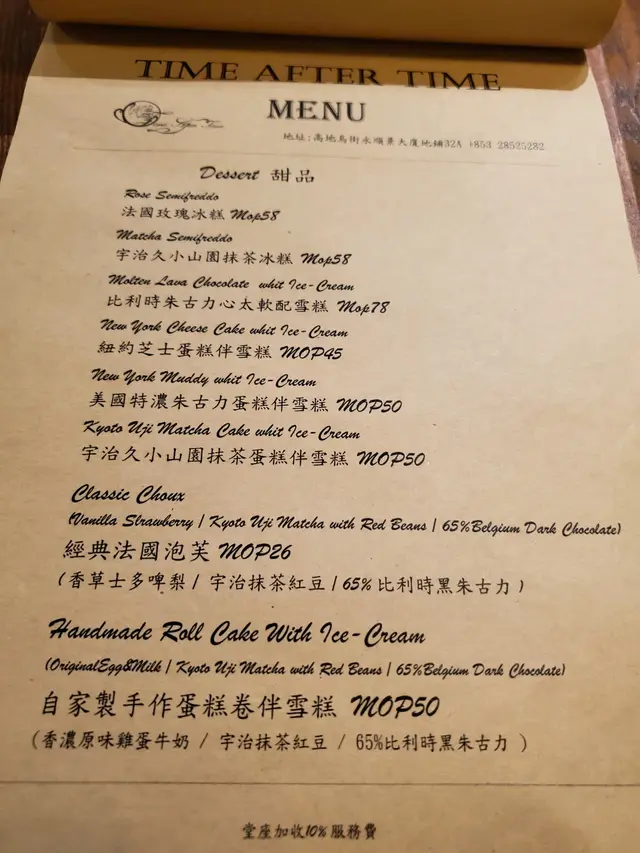 TIME AFTER TIME
MENU
地址:高地烏街永順業大廈地鋪32A +853 28525282
Dessert 甜品
Rose Semifreddo
法國玫瑰冰糕 Mop58
Matcha Semifreddo
宇治久小山園抹茶冰糕 Mop58
Molten Lava Chocolate whit Ice-Cream
比利時朱古力心太軟配雪糕 Mop78
New York Cheese Cake whit Ice-Cream
紐約芝士蛋糕伴雪糕 MOP45
New York Muddy whit Ice-Cream
美國特濃朱古力蛋糕伴雪糕 MOP50
Kyoto Uji Matcha Cake whit Ice-Cream
宇治久小山園抹茶蛋糕伴雪糕 MOP50
Classic Choux
(Vanilla Strawberry / Kyoto Uji Matcha with Red Beans / 65%Belgium Dark Chocolate)
經典法國泡芙 MOP26
(香草士多啤梨 / 宇治抹茶紅豆 / 65% 比利時黑朱古力 )
Handmade Roll Cake With Ice-Cream
(OriginalEgg&Milk / Kyoto Uji Matcha with Red Beans / 65%Belgium Dark Chocolate)
自家製手作蛋糕卷伴雪糕 MOP50
(香濃原味雞蛋牛奶 / 宇治抹茶紅豆 / 65%比利時黑朱古力 )
堂座加收10%服務費